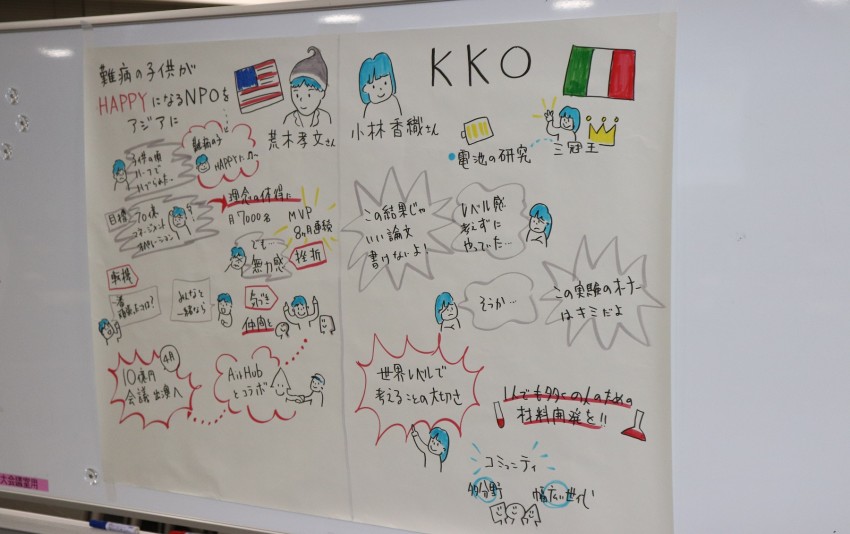 難病の子供が
HAPPYになるNPOを
アジアに
荒木孝文さん
難病の子
HAPPYに
子供の頃
目標
70億
理念の体得に
月7000名
MVP
8ヵ月連続
でも…
無力感
挫折
転機
みんなと
一緒なら
気づき
仲間を
4月
10億円
会議 出演へ
AileHub
とコラボ
KKO
小林香織さん
電池の研究
三冠王
この結果じゃ
いい論文
書けないよ!
レベル感
考えずに
やっていた…
そうか…
この実験のオーナー
はキミだよ
世界レベルで
考えることの大切さ
1人でも多くの人のための
材料開発を!!
コミュニティ
多分野
幅広い世代
大会議室用